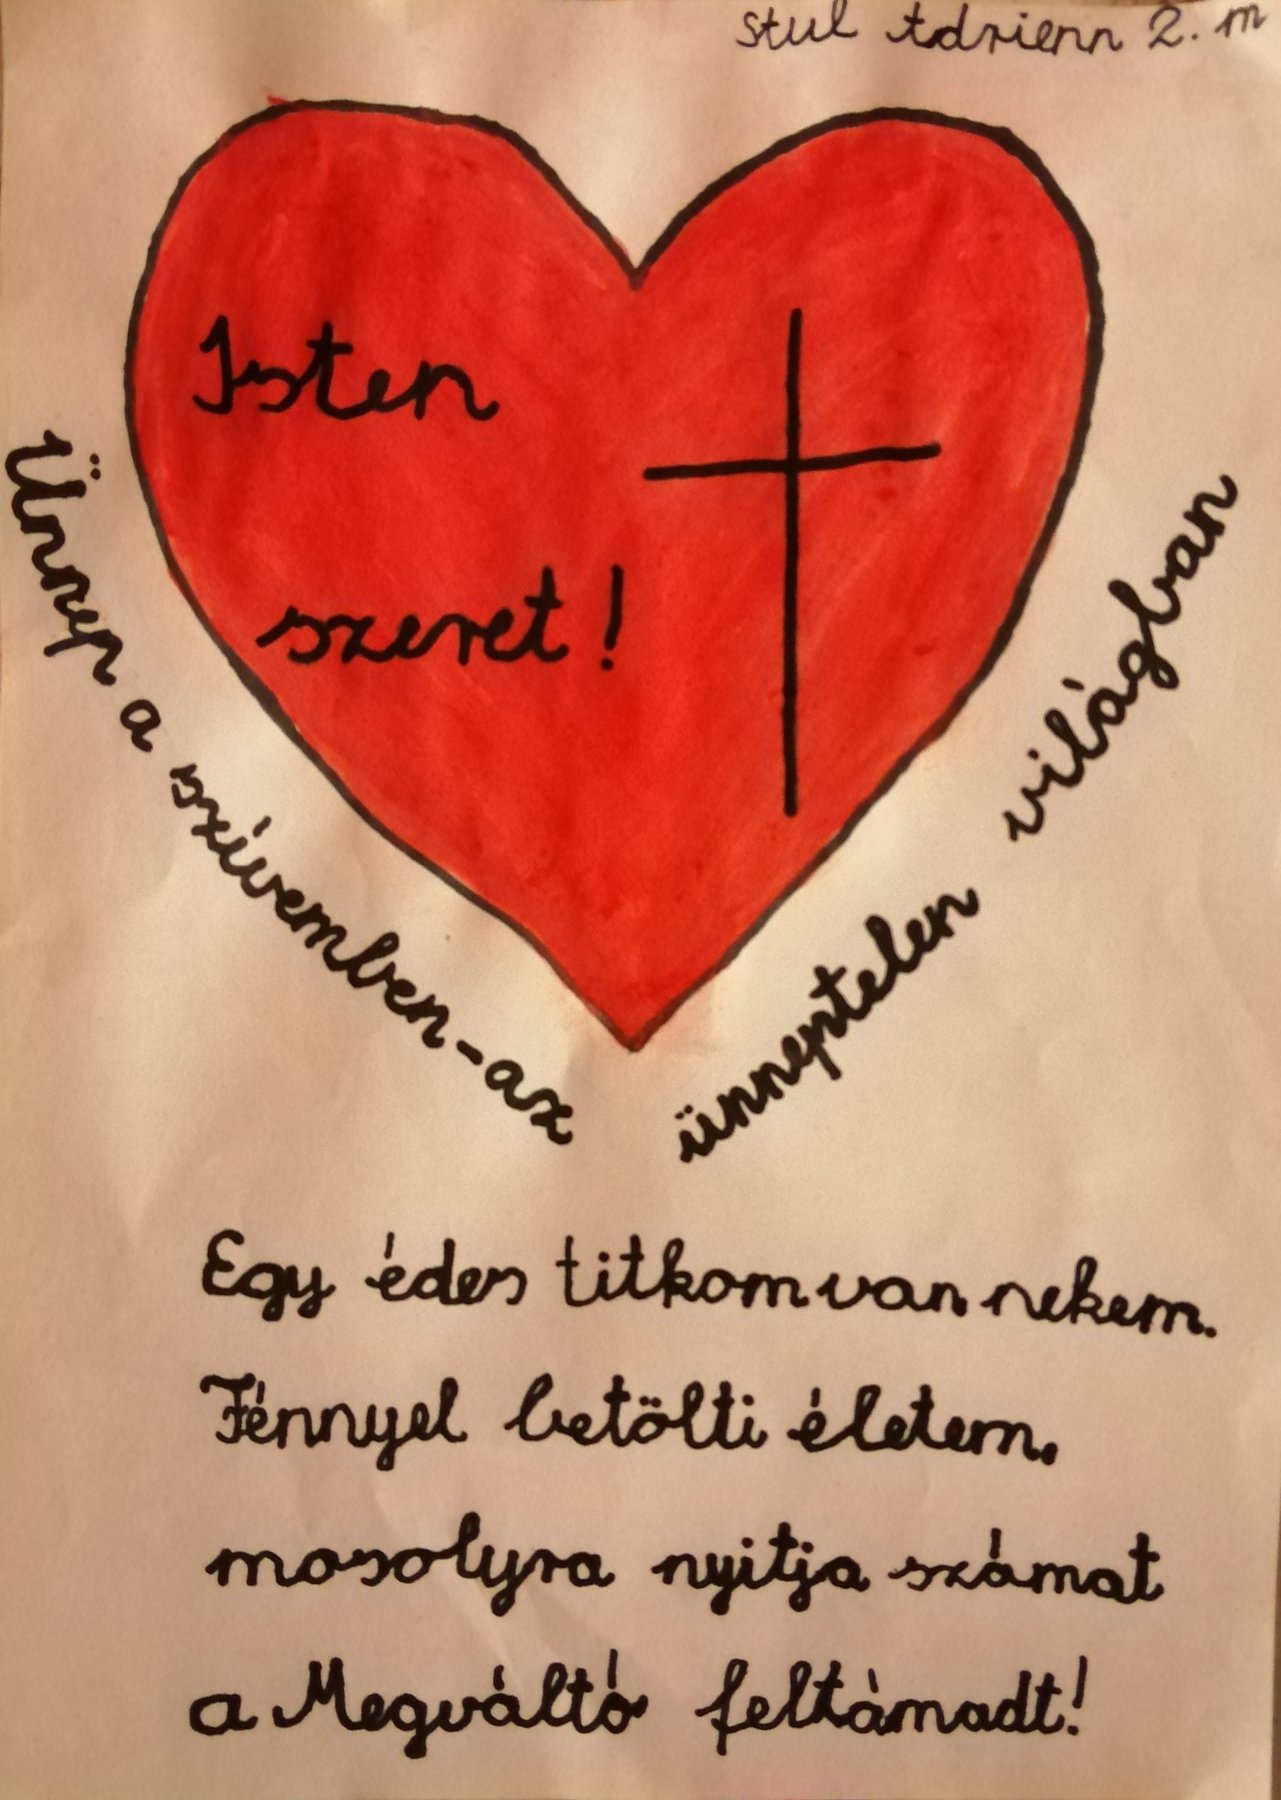 Stul Adrienn 2. m
Isten
szeret!
Ünnep a szívemben - az
ünneptelen világban
Egy édes titkom van nekem.
Fénnyel betölti életem.
mosolyra nyitja számat
a Megváltó feltámadt!